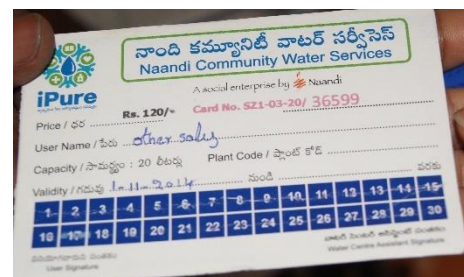 నాంది కమ్యూనిటీ వాటర్ సర్వీసెస్
Naandi Community Water Services
iPure
A social enterprise by Naandi
Price / ధర Rs. 120/- Card No. SZ1-03-20/ 36599
User Name / పేరు
Capacity / సామర్థ్యం : 20 లీటర్లు Plant Code / ప్లాంట్ కోడ్
Validity / గడువు 1-11-2014 నుండి వరకు
1 2 3 4 5 6 7 8 9 10 11 12 13 14 15
16 17 18 19 20 21 22 23 24 25 26 27 28 29 30
వినియోగదారుని సంతకం
User Signature
వాటర్ సెంటర్ అసిస్టెంట్ సంతకం
Water Centre Assistant Signature